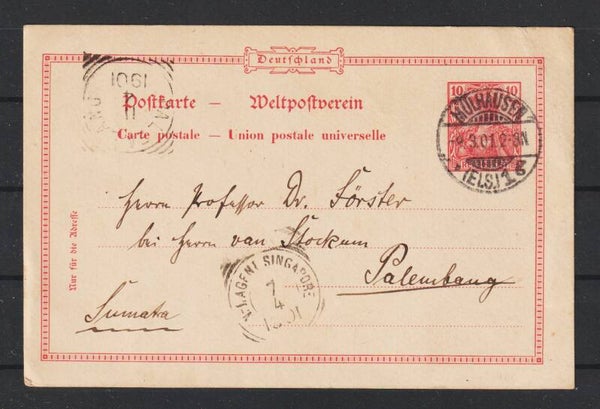 Deutschland
Postkarte — Weltpostverein
Carte postale — Union postale universelle
10 10
MÜLHAUSEN
9.3.01.2-3N
(ELS.) 1 c
Herrn Professor Dr. Förster
bei Herrn van Stockum
Palembang
Sumatra
Nur für die Adresse
AGENT SINGAPORE
7
4
1901
11
4
1901